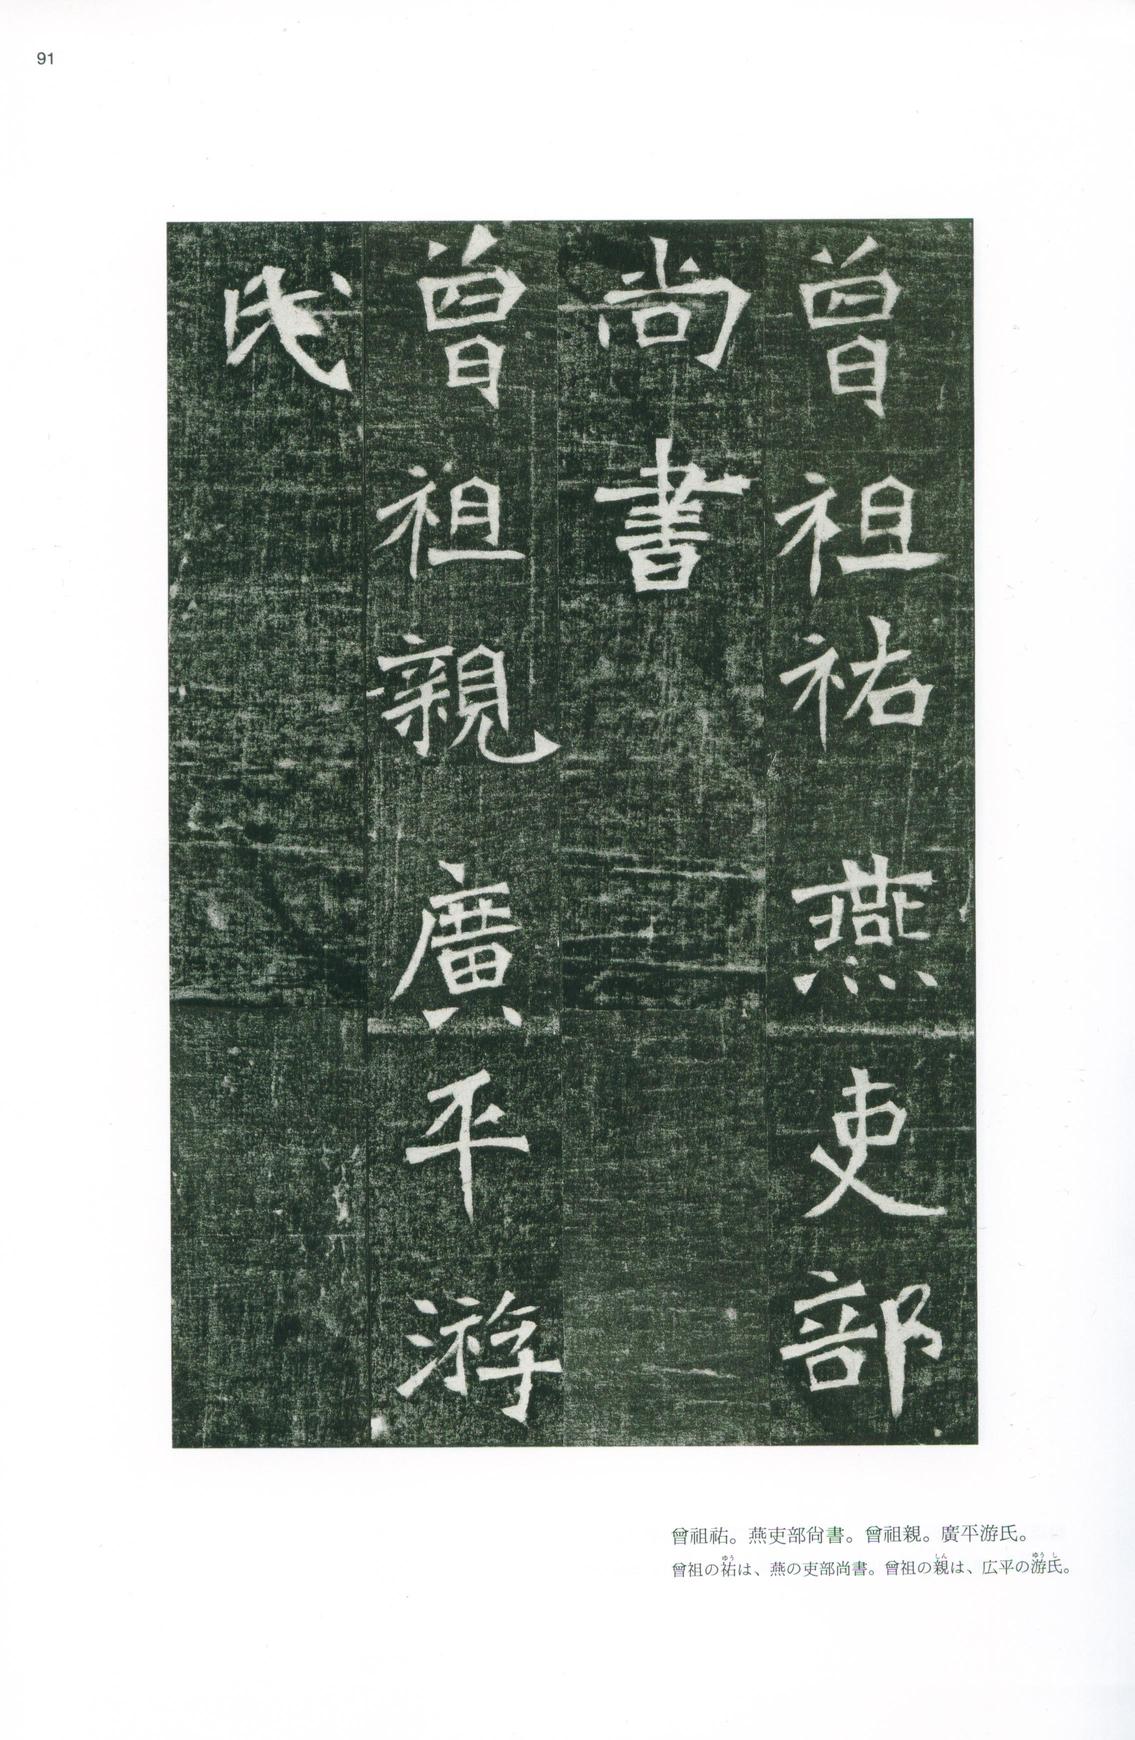 91
曾祖祐燕吏部
尚書
曾祖親廣平游
氏
曾祖祐。燕吏部尙書。曾祖親。廣平游氏。
曾祖の祐は、燕の吏部尚書。曾祖の親は、広平の游氏。